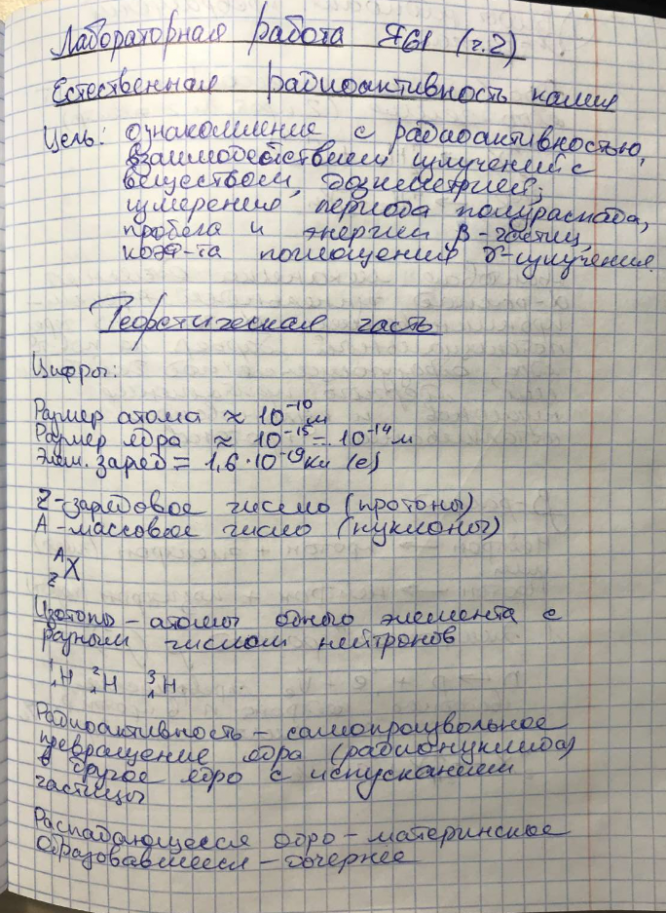 Лабораторная работа Я61 (ч.2)
Естественная радиоактивность калия
Цель: ознакомление с радиоактивностью,
взаимодействием излучений с
веществом, дозиметрией;
измерение периода полураспада,
пробега и энергии β-частиц,
коэф-та поглощения γ-излучения.
Теоретическая часть
Цифры:
Размер атома ≈ 10⁻¹⁰ м
Размер ядра ≈ 10⁻¹⁵ - 10⁻¹⁴ м
Элем. заряд = 1,6·10⁻¹⁹ Кл (e)
Z-зарядовое число (протоны)
A-массовое число (нуклоны)
ᴬ_Z X
Изотопы - атомы одного элемента с
разным числом нейтронов
¹₁H ²₁H ³₁H
Радиоактивность - самопроизвольное
превращение ядра (радионуклида)
в другое ядро с испусканием
частицы
Распадающееся ядро - материнское
Образовавшееся - дочернее